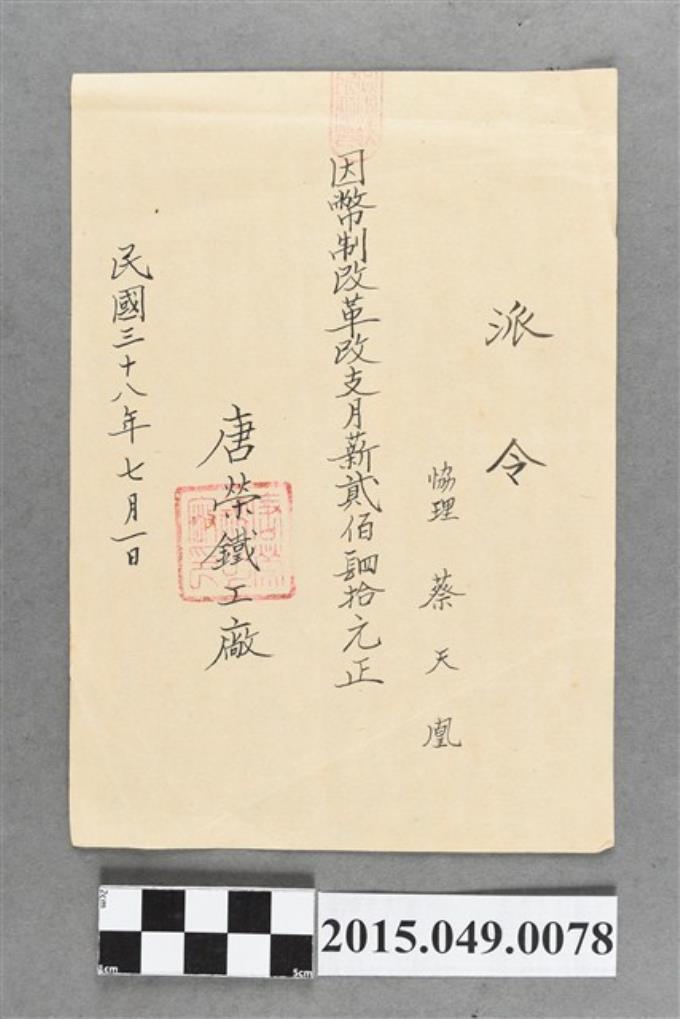 派令
協理 蔡天凰
因幣制改革改支月薪貳佰肆拾元正
唐榮鐵工廠
民國三十八年七月一日
2cm
1cm
5cm
2015.049.0078